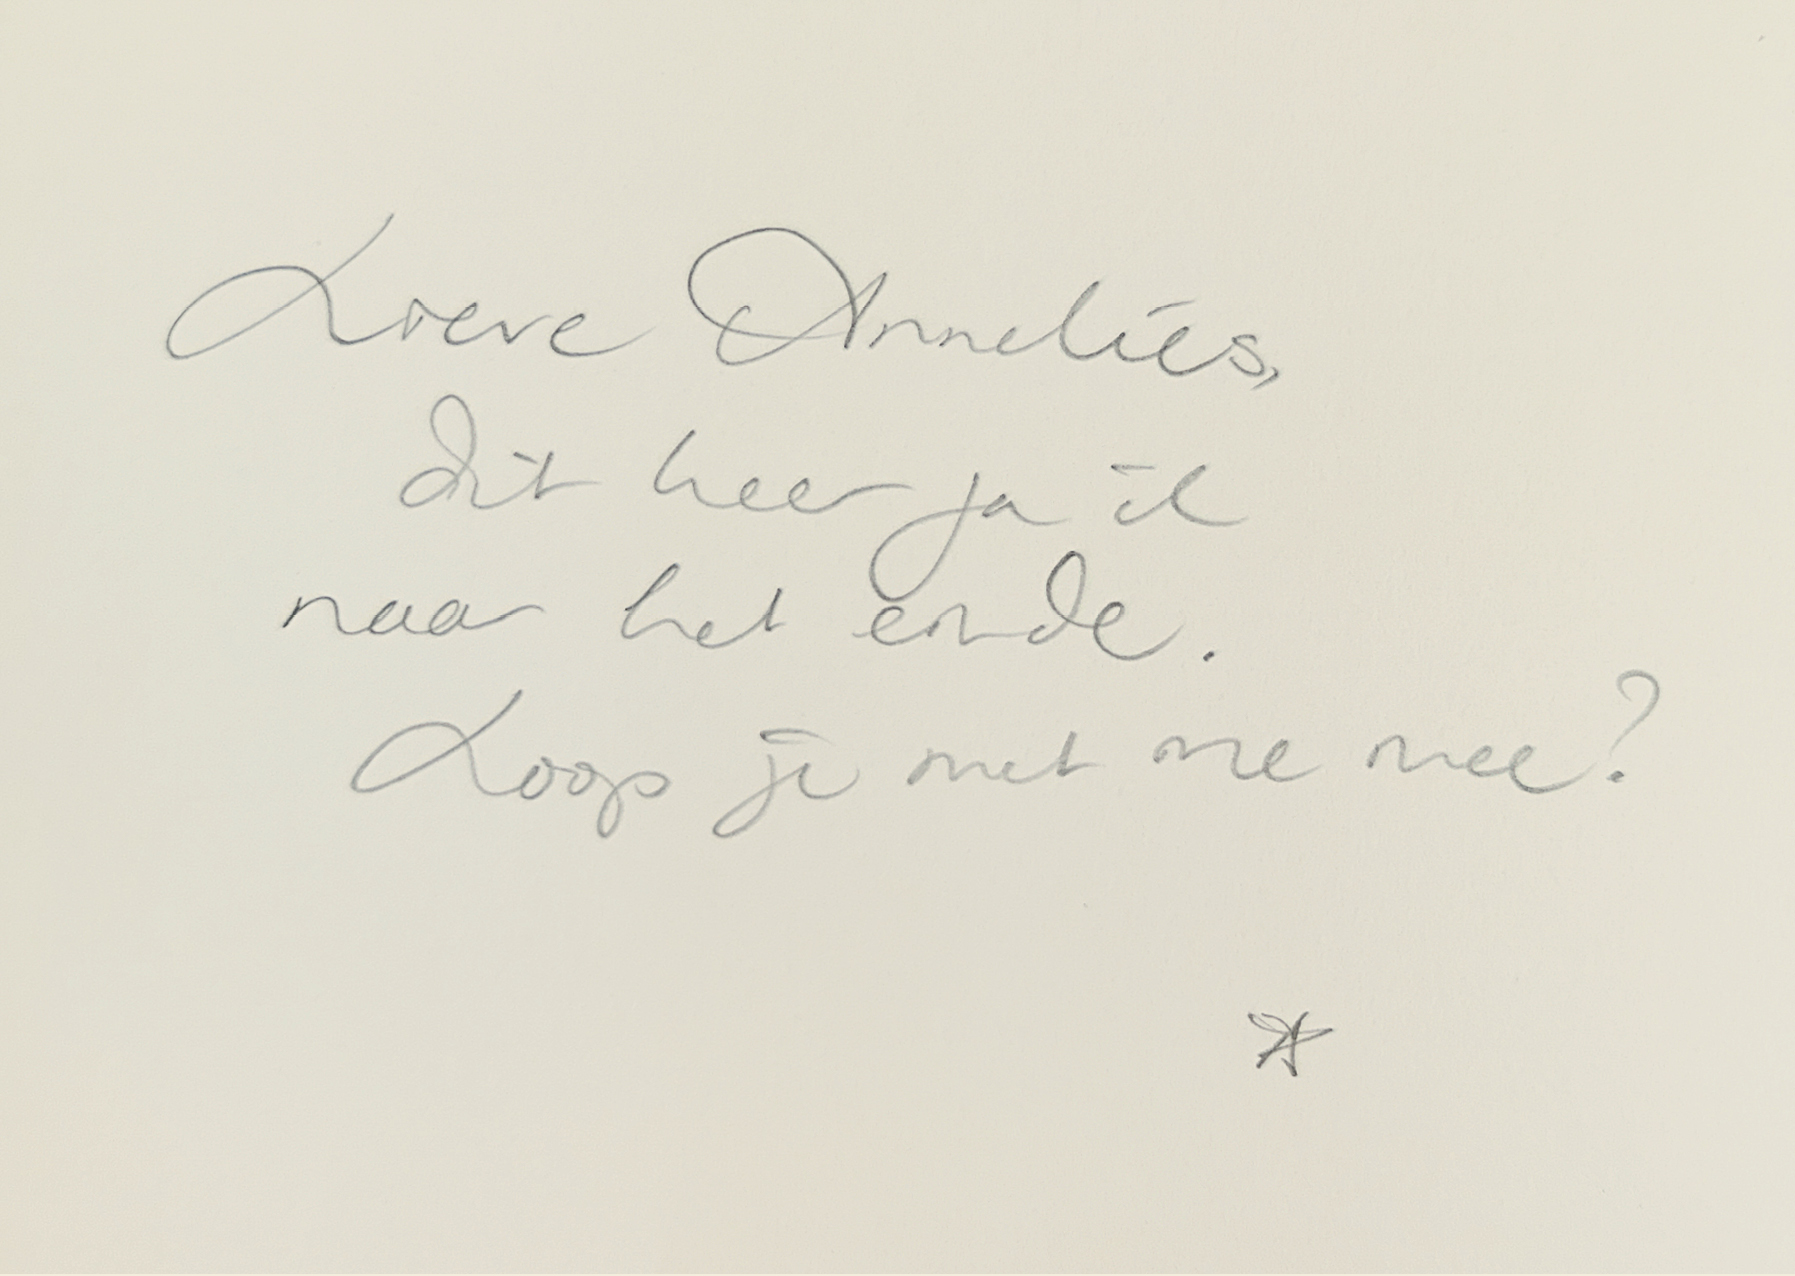 Lieve Annelies,
dit keer ga ik
naar het einde.
Loop je met me mee?